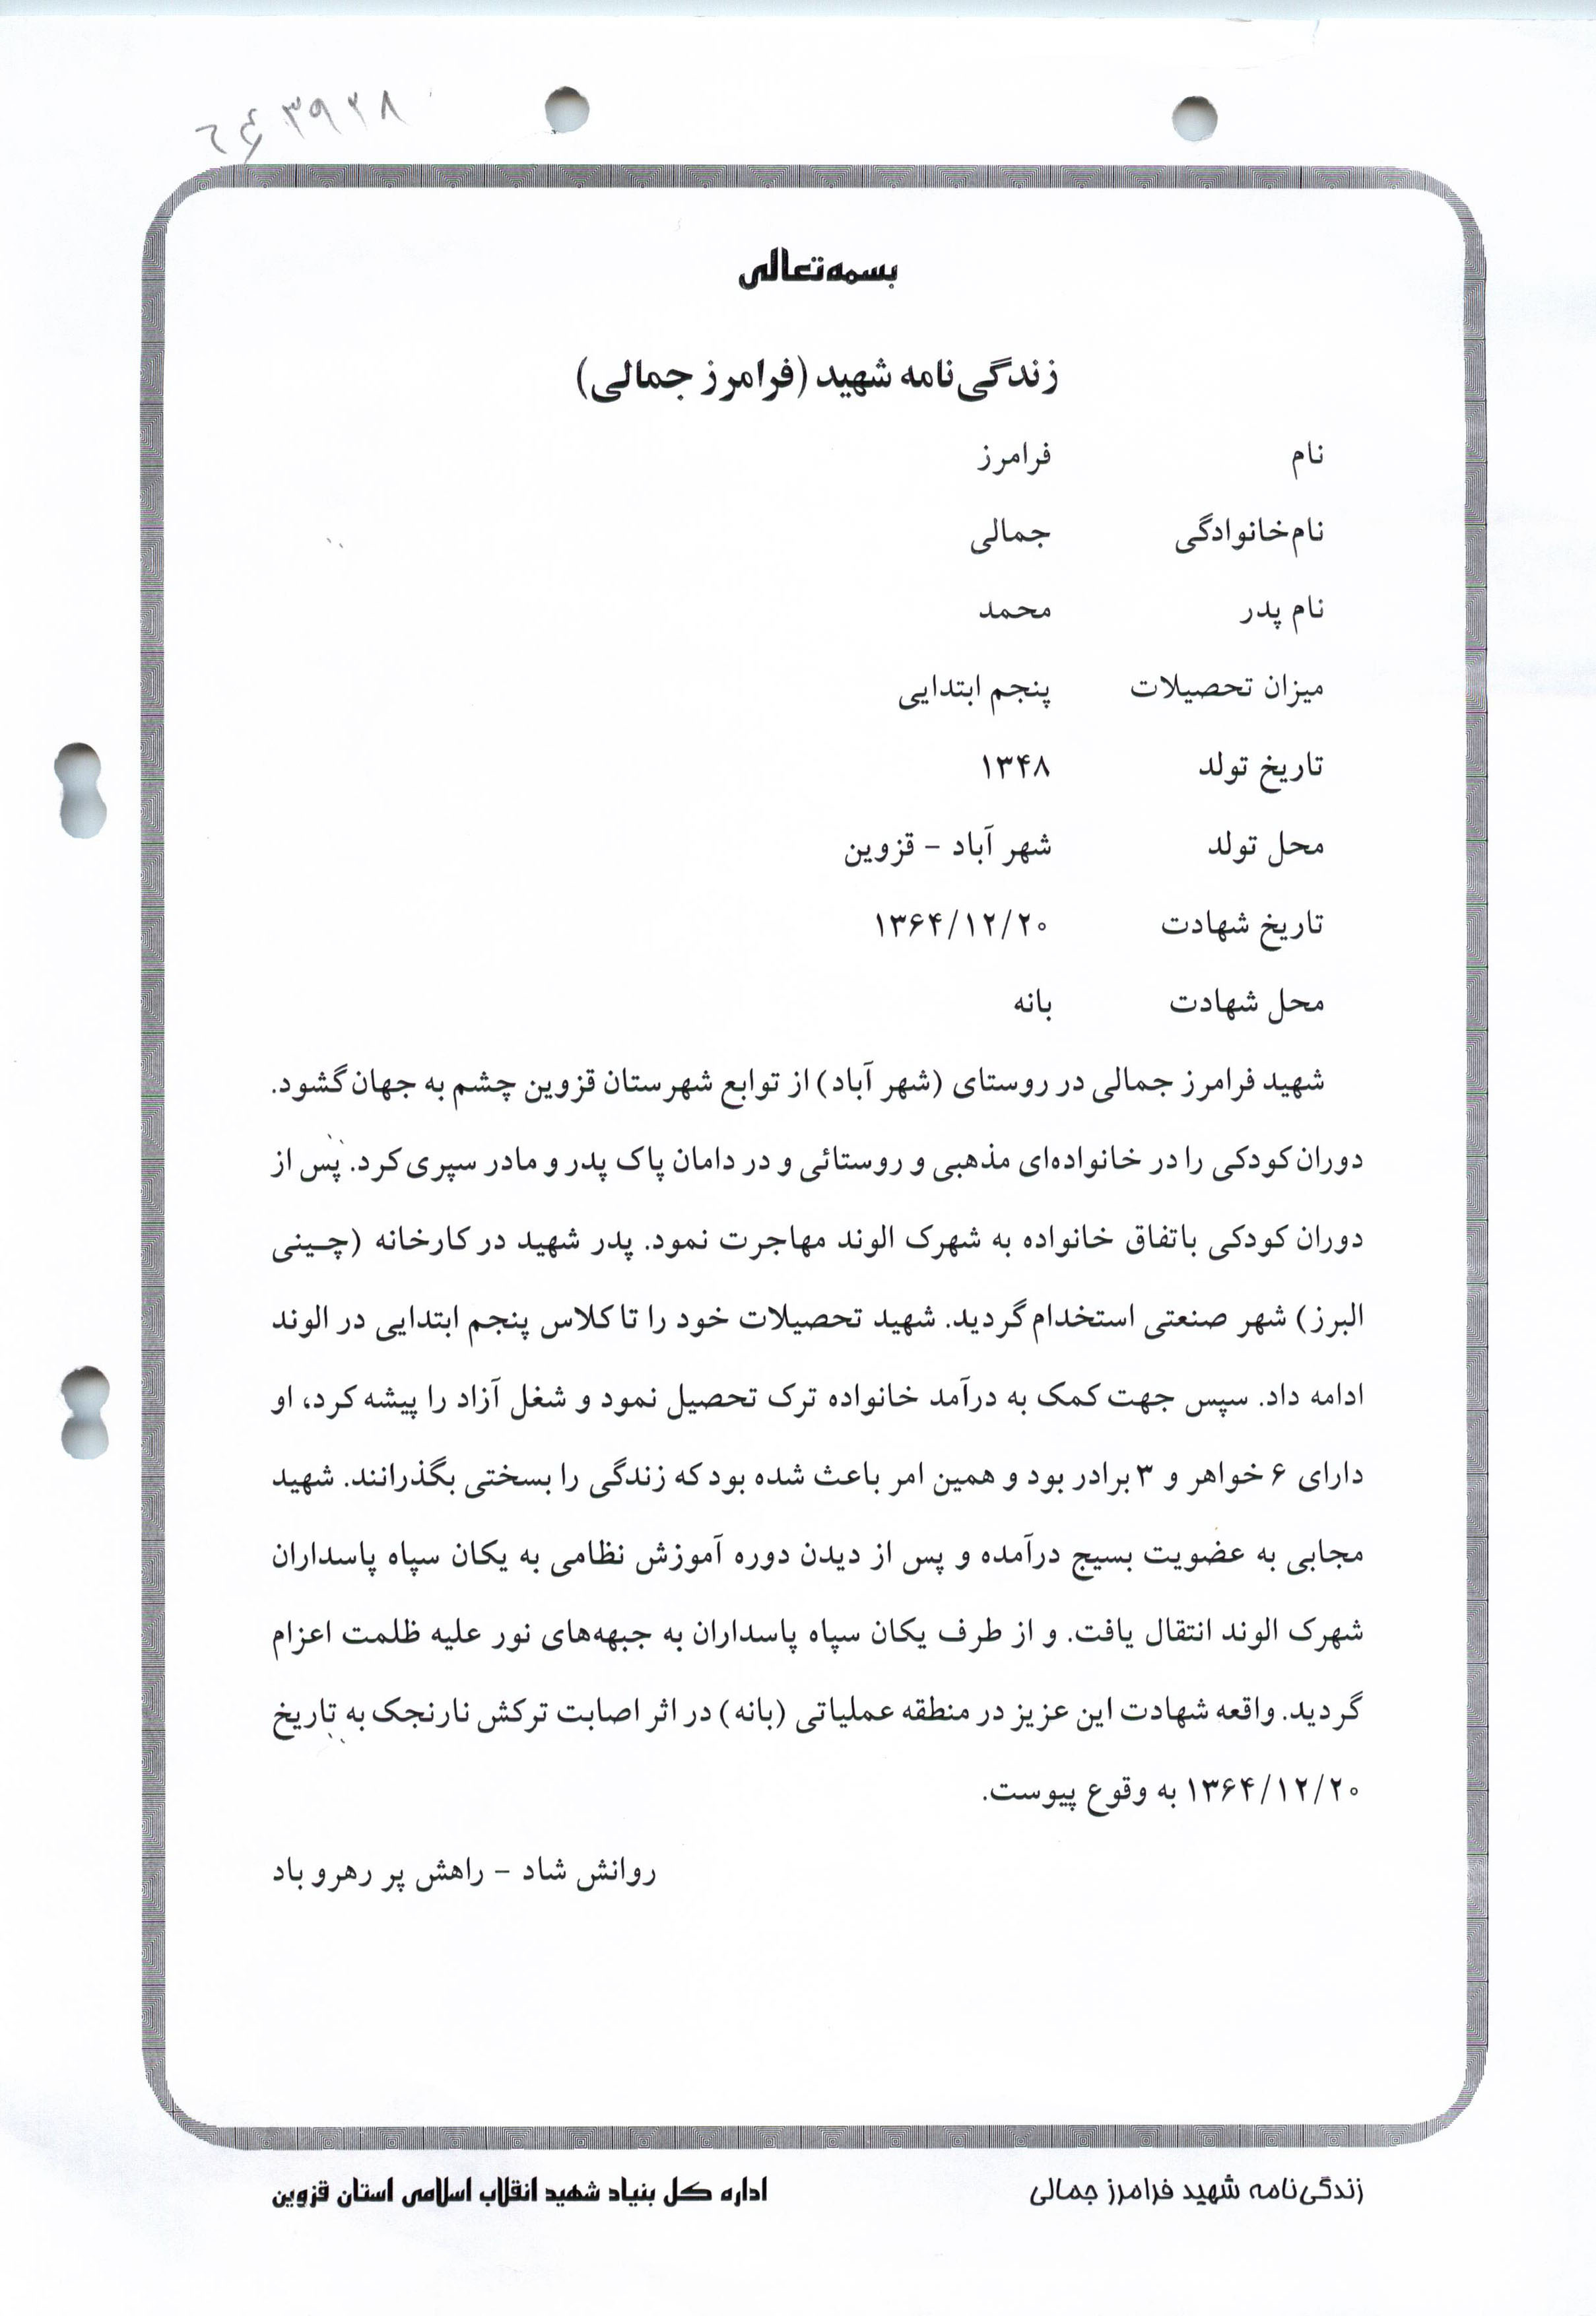 بسمه‌تعالی
زندگی‌نامه شهید (فرامرز جمالی)
نام فرامرز
نام‌خانوادگی جمالی
نام پدر محمد
میزان تحصیلات پنجم ابتدایی
تاریخ تولد ۱۳۴۸
محل تولد شهر آباد - قزوین
تاریخ شهادت ۱۳۶۴/۱۲/۲۰
محل شهادت بانه
شهید فرامرز جمالی در روستای (شهر آباد) از توابع شهرستان قزوین چشم به جهان گشود.
دوران کودکی را در خانواده‌ای مذهبی و روستائی و در دامان پاک پدر و مادر سپری کرد. پس از
دوران کودکی باتفاق خانواده به شهرک الوند مهاجرت نمود. پدر شهید در کارخانه (چینی
البرز) شهر صنعتی استخدام گردید. شهید تحصیلات خود را تا کلاس پنجم ابتدایی در الوند
ادامه داد. سپس جهت کمک به درآمد خانواده ترک تحصیل نمود و شغل آزاد را پیشه کرد، او
دارای ۶ خواهر و ۳ برادر بود و همین امر باعث شده بود که زندگی را بسختی بگذرانند. شهید
مجابی به عضویت بسیج درآمده و پس از دیدن دوره آموزش نظامی به یکان سپاه پاسداران
شهرک الوند انتقال یافت. و از طرف یکان سپاه پاسداران به جبهه‌های نور علیه ظلمت اعزام
گردید. واقعه شهادت این عزیز در منطقه عملیاتی (بانه) در اثر اصابت ترکش نارنجک به تاریخ
۱۳۶۴/۱۲/۲۰ به وقوع پیوست.
روانش شاد - راهش پر رهرو باد
زندگی‌نامه شهید فرامرز جمالی
اداره کل بنیاد شهید انقلاب اسلامی استان قزوین